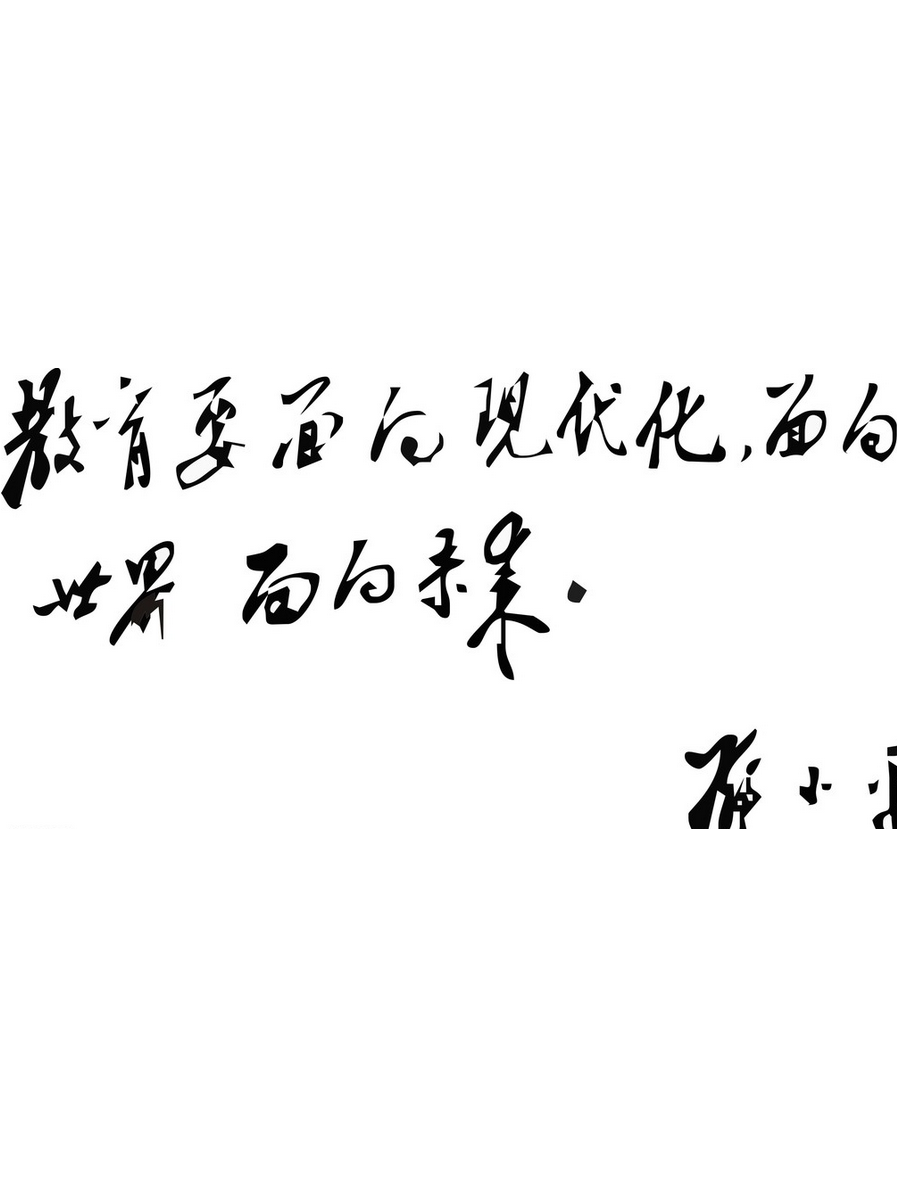 教育要面向现代化,面向
世界 面向未来.
邓小平